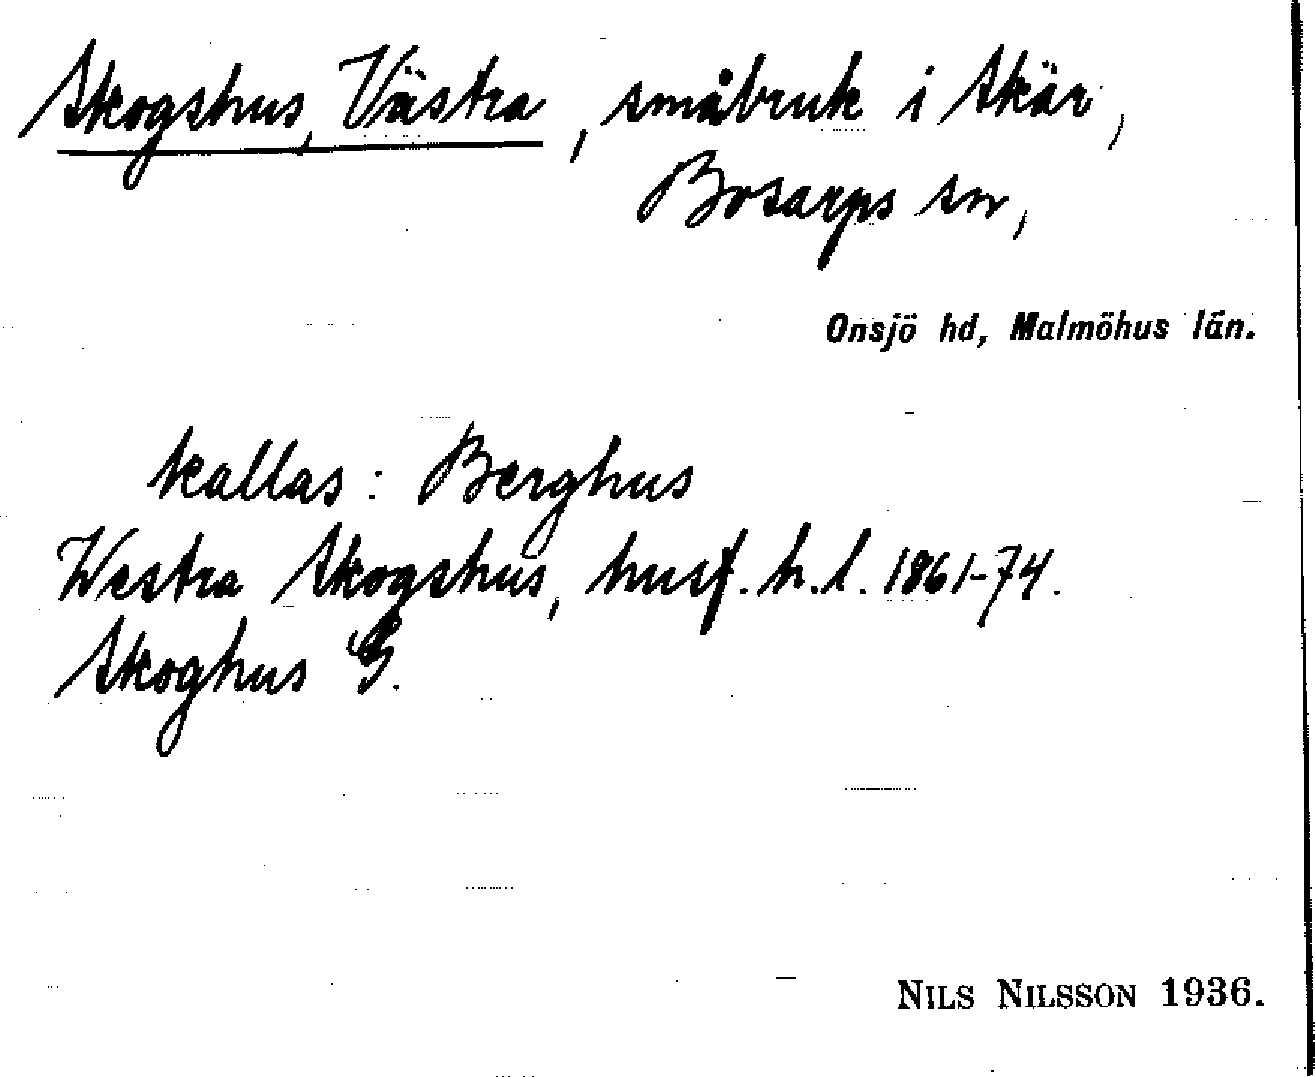 Skogshus, Västra, småbruk i Skär,
Bosarps sn,
Onsjö hd, Malmöhus län.
kallas: Berghus
Westra Skogshus, husf. h. l. 1861-74.
Skoghus G.
NILS NILSSON 1936.